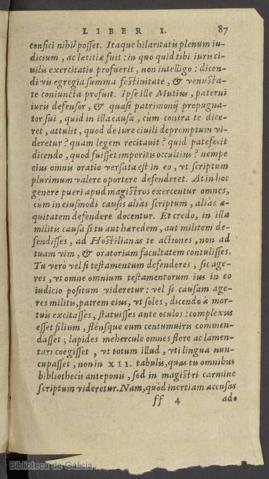 LIBER I. 87
confici nihil posset. Itaque hilaritatis plenum iu-
dicium, ac lætitiæ fuit: in quo quid tibi iuris ci-
uilis exercitatio profuerit, non intelligo: dicen-
di vis egregia summa festiuitate, & venusta-
te coniuncta profuit. Ipse ille Mutius, paterni
iuris defensor, & quasi patrimonij propugna-
tor sui, quid in illa causa, cùm contra te dice-
ret, attulit, quod de iure ciuili depromptum vi-
deretur? quam legem recitauit? quid patefecit
dicendo, quod fuisset imperitis occultius? nempe
eius omnis oratio versata est in eo, vt scriptum
plurimum valere oportere defenderet. At in hoc
genere pueri apud magistros exercentur omnes,
cum in eiusmodi causis aliàs scriptum, aliàs æ-
quitatem defendere docentur. Et credo, in illa
militis causa si tu aut hæredem, aut militem de-
fendisses, ad Hostilianas te actiones, non ad
tuam vim, & oratoriam facultatem contulisses.
Tu verò vel si testamentum defenderes, sic age-
res, vt omne omnium testamentorum ius in eo
iudicio positum videretur: vel si causam age-
res militis, patrem eius, vt soles, dicendo à mor-
tuis excitasses, statuisses ante oculos: complexus
esset filium, flénsque eum centumuiris commen-
dasset; lapides mehercule omnes flere ac lamen-
tari coegisset, vt totum illud, vti lingua nun-
cupasset, non in XII. tabulis, quas tu omnibus
bibliothecis anteponis, sed in magistri carmine
scriptum videretur. Nam, quòd inertiam accusas
ff 4 ado-
Biblioteca de Galicia